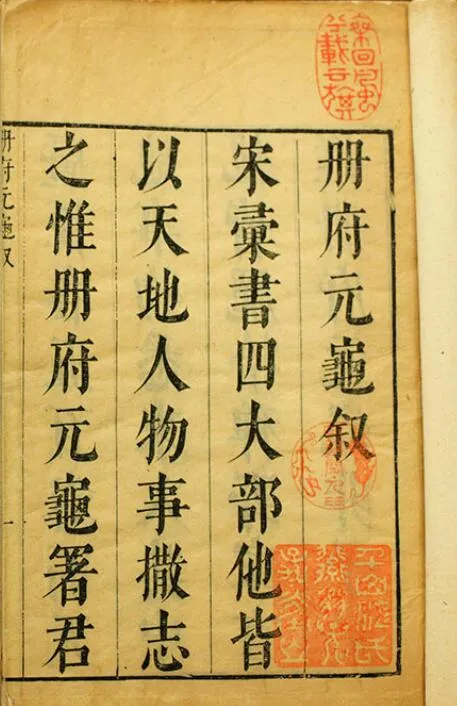 册府元龜叙
宋彚書四大部他皆
以天地人物事撒志
之惟册府元龜署君
册府元龜叙
一